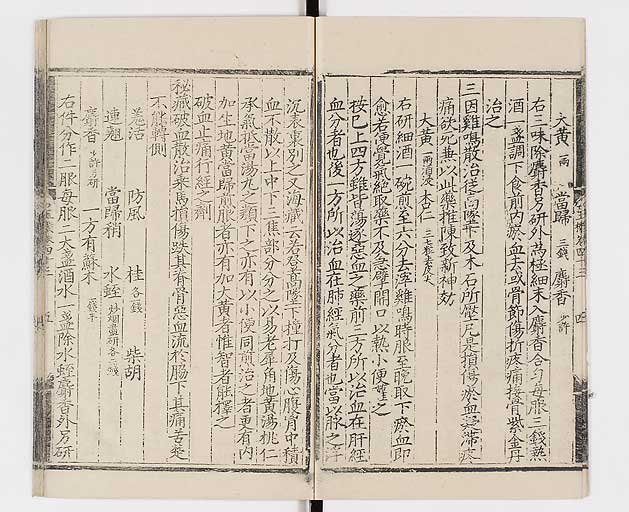 大黄一兩 當歸三錢 麝香少許
右三味除麝香另研外為極細末入麝香合勻每服三錢熱
酒一盞調下食前内瘀血去或骨節傷折疼痛接骨紫金丹
治之
三因雞鳴散治從高墜下及木石所壓凡是損傷瘀血凝滯疼
痛欲死兼以此藥推陳致新神効
大黄一兩酒浸 杏仁三七粒去皮尖
右研細酒一碗煎至六分去滓雞鳴時服至晚取下瘀血即
愈若便覺氣絶取藥不及急擘開口以熱小便灌之
按已上四方雖皆蕩逐惡血之藥前三方所以治血在肝經
血分者也後一方所以治血在肺經氣分者也當以脉之浮
沉表裏別之又海藏云若登高墜下撞打及傷心腹胷中積
血不散以上中下三焦部分分之以易老犀角地黄湯桃仁
承氣抵當湯丸之類下之亦有以小便同酒治之者更有内
加生地黄當歸煎服者亦有加大黄者惟智者能擇之
破血止痛行經之劑
秘藏破血散治乘馬損傷跌其脊骨惡血流於脇下其痛苦楚
不能轉側
羗活 防風 桂各一錢 柴胡
連翹 當歸稍 水蛭炒烟盡研各二錢
麝香少許另研 一方有蘇木一錢半
右件分作二服每服二大盞酒水一盞除水蛭麝香外另研